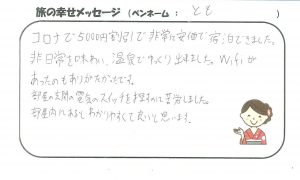 旅の幸せメッセージ (ペンネーム： とも )
コロナで5000円割引で非常に安価で宿泊できました。
非日常を味わい、温泉でゆっくり出来ました。Wifiが
あったのもありがたかったです。
部屋の玄関の電気のスイッチを押すのに苦労しました。
部屋内にあるとわかりやすくて良いと思います。